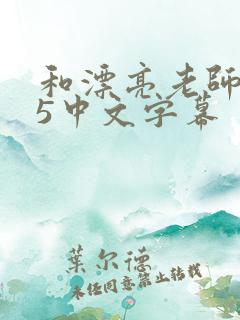 和漂亮老師
5中文字幕
葉尔德
未经同意禁止转载